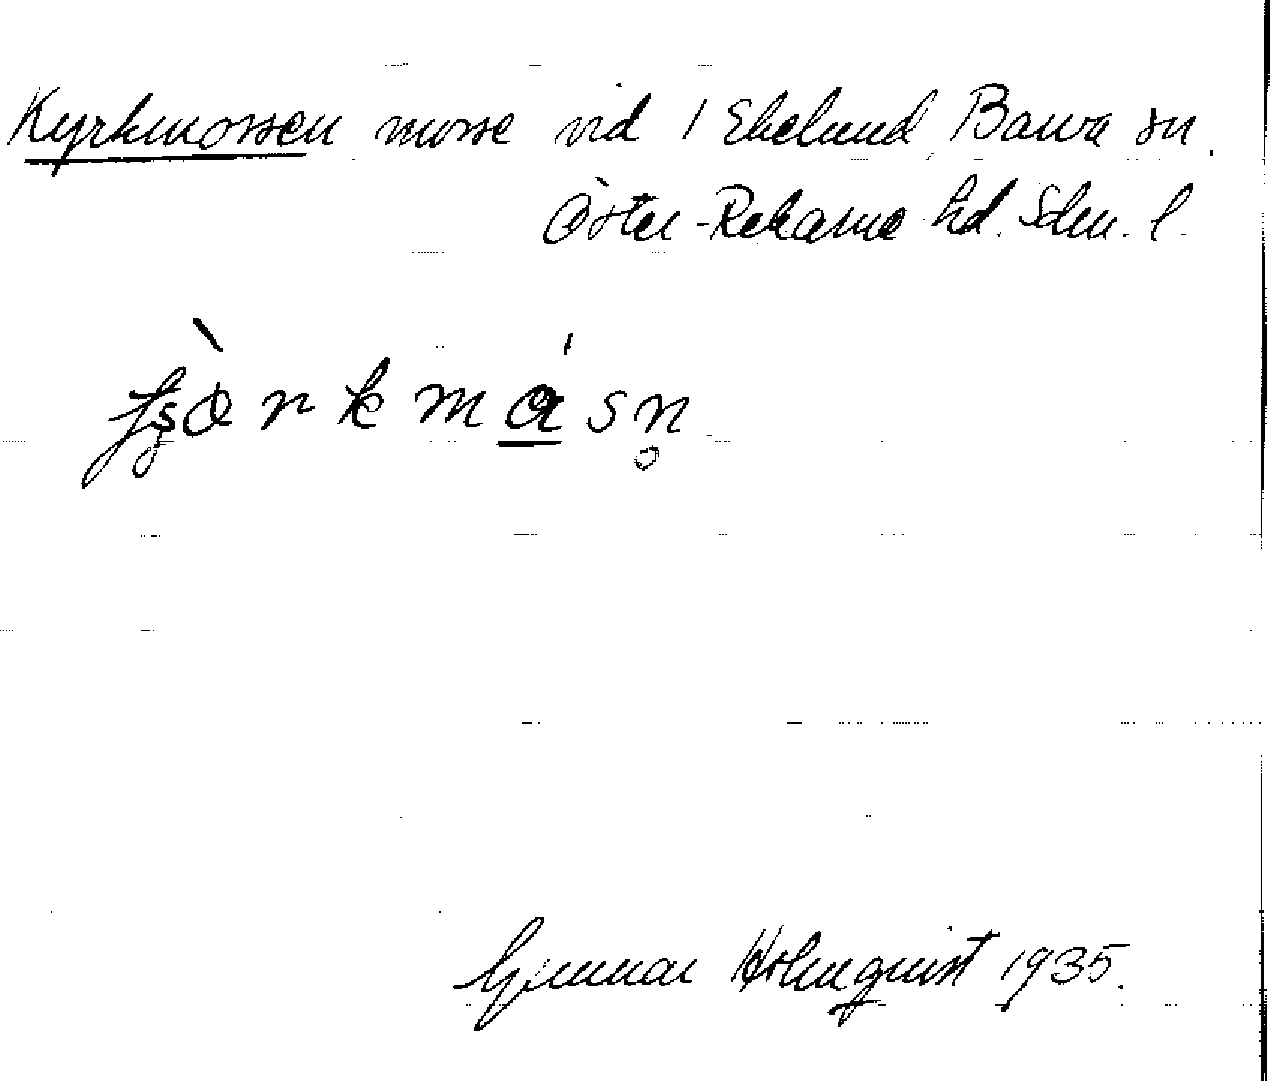 Kyrkmossen mosse vid 1 Ekelund Barva sn.
Öster-Rekarne hd. Sdm. l.
Gunnar Holmquist 1935.